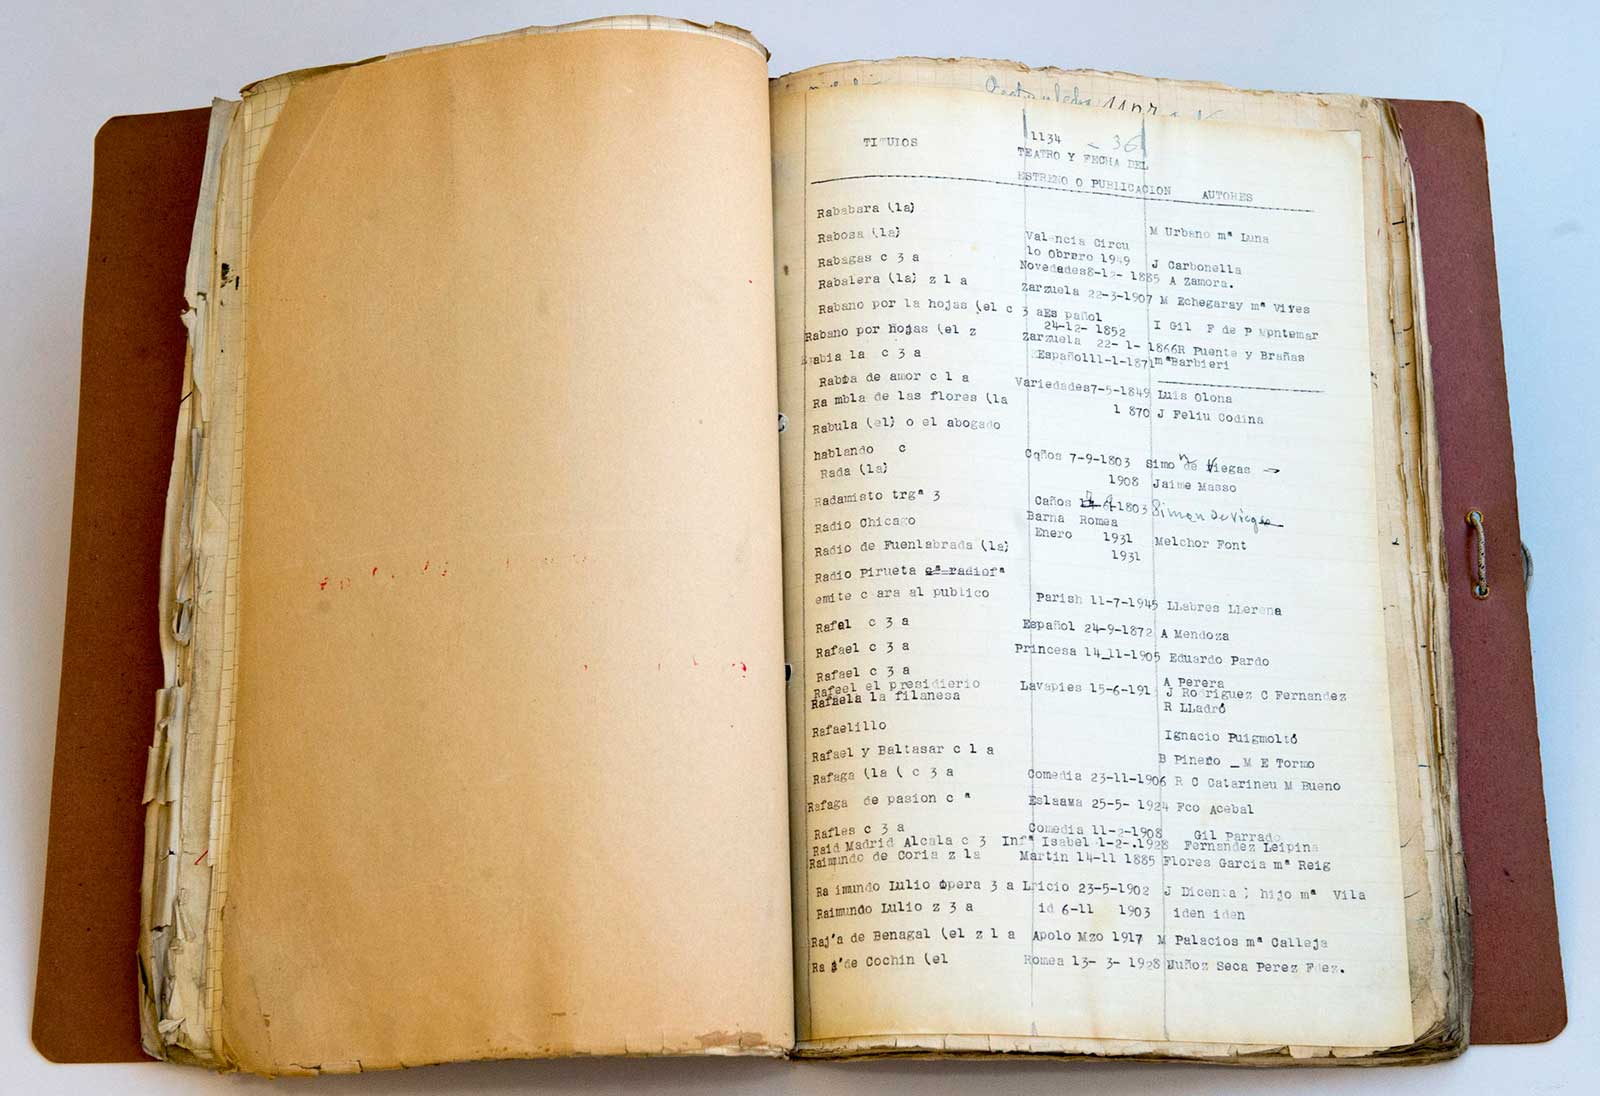 1107
1134 - 36
TITUIOS TEATRO Y FECHA DEL
ESTRENO O PUBLICACION AUTORES
Rababara (la)
M Urbano mª Luna
Rabosa (la) Valencia Circu
lo Obrero 1949 J Carbonella
Rabagas c 3 a Novedades8-12- 1885 A Zamora.
Rabalera (la) z l a Zarzuela 22-3-1907 M Echegaray mª Vives
Rabano por la hojas (el c 3 aEs pañol
24-12- 1852 I Gil F de P Mpntemar
Rabano por hojas (el z Zarzuela 22-1- 1866R Puente y Brañas
mªBarbieri
Rabia la c 3 a Español11-1-1871
Rabia de amor c l a Variedades7-5-1849 Luis Olona
Ra mbla de las flores (la 1 870 J Feliu Codina
Rabula (el) o el abogado
hablando c Cqños 7-9-1803 Simo n de Viegas
Rada (la) 1908 Jaime Masso
Radamisto trgª 3 Caños 1803 Simon de Viegas
Radio Chicago Barna Romea
Enero 1931 Melchor Font
Radio de Fuenlabrada (la) 1931
Radio Pirueta cª radiofª
emite c ara al publico Parish 11-7-1945 LLabres LLerena
Rafel c 3 a Español 24-9-1872 A Mendoza
Rafael c 3 a Princesa 14_11-1905 Eduardo Pardo
Rafael c 3 a A Perera
Rafeel el presidierio Lavapies 15-6-191 J Rodriguez C Fernandez
Rafaela la filanesa R LLadró
Rafaelillo Ignacio Puigmoltó
Rafael y Baltasar c l a B Pinero _ M E Tormo
Rafaga (la ( c 3 a Comedia 23-11-1906 R C Catarineu M Bueno
Rafaga de pasion c ª Eslaawa 25-5- 1924 Fco Acebal
Rafles c 3 a Comedia 11-2-1908 Gil Parrado
Raid Madrid Alcala c 3 Infª Isabel 1-2-.1928 Fernandez Leipina
Raimundo de Coria z la Martin 14-11 1885 Flores Garcia mª Reig
Ra imundo Lulio opera 3 a Lricio 23-5-1902 J Dicenta ) hijo mª Vila
Raimundo Lulio z 3 a id 6-11 1903 iden iden
Raj'a de Benagal (el z l a Apolo Mzo 1917 M Palacios mª Calleja
Ra j'de Cochin (el Romea 13- 3- 1928 Muñoz Seca Perez Fdez.